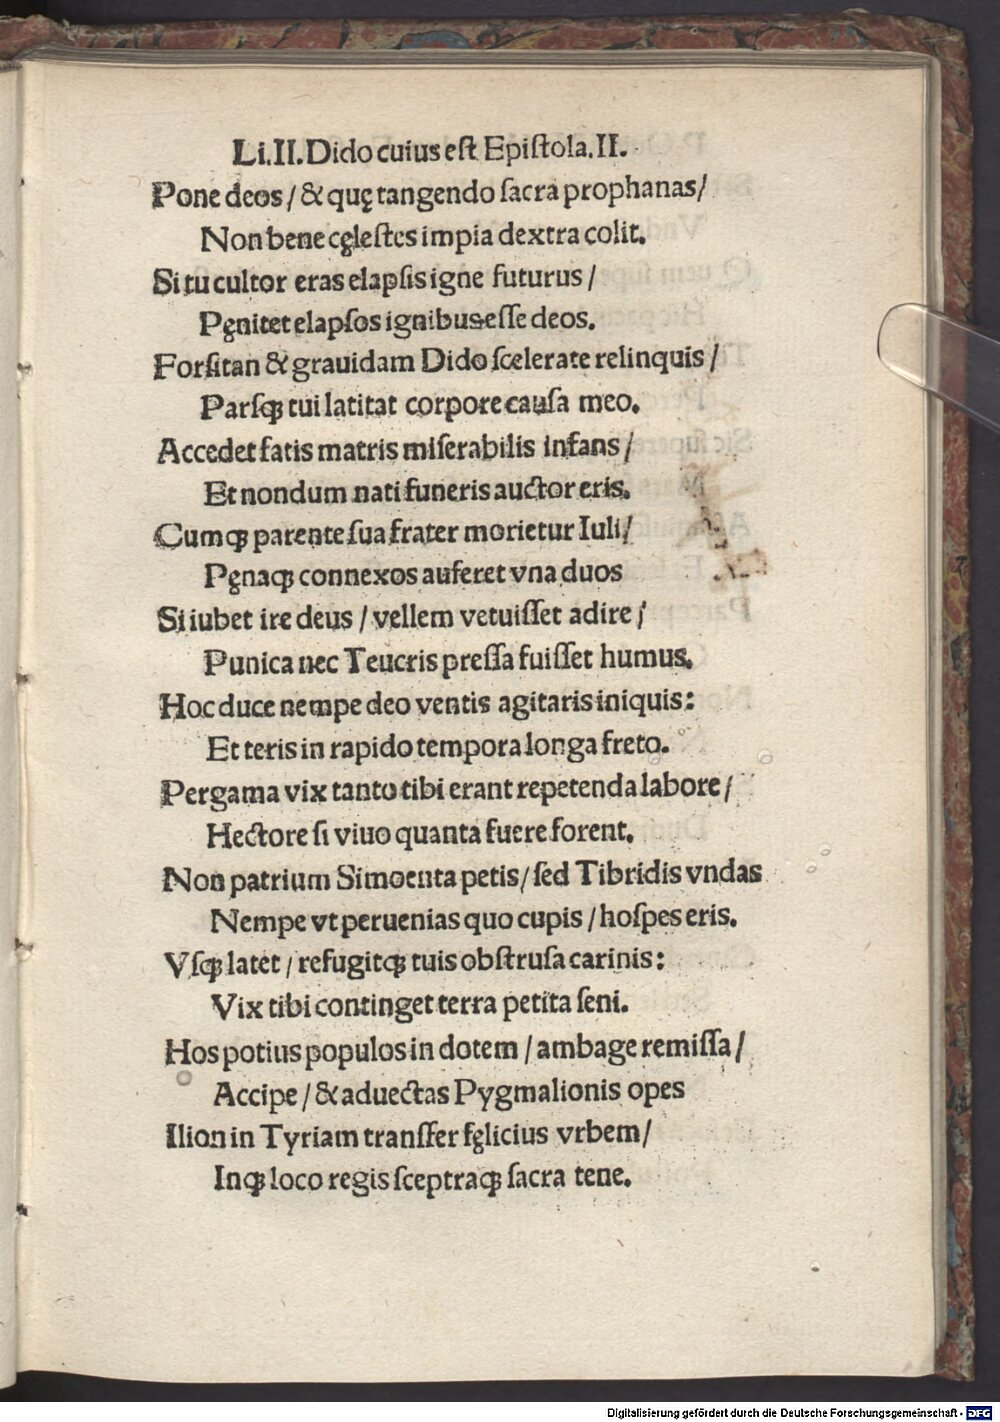 Li.II.Dido cuius eſt Epiſtola.II.
Pone deos / & quę tangendo ſacra prophanas /
Non bene cęleſtes impia dextra colit.
Si tu cultor eras elapſis igne futurus /
Pęnitet elapſos ignibus eſſe deos.
Forſitan & grauidam Dido ſcelerate relinquis /
Parsꝗ tui latitat corpore cauſa meo.
Accedet fatis matris miſerabilis infans /
Et nondum nati funeris auctor eris.
Cumꝗ parente ſua frater morietur Iuli /
Pęnaꝗ connexos auferet vna duos
Si iubet ire deus / vellem vetuiſſet adire /
Punica nec Teucris preſſa fuiſſet humus.
Hoc duce nempe deo ventis agitaris iniquis:
Et teris in rapido tempora longa freto.
Pergama vix tanto tibi erant repetenda labore /
Hectore ſi viuo quanta fuere forent.
Non patrium Simoenta petis / ſed Tibridis vndas
Nempe vt peruenias quo cupis / hoſpes eris.
Vſꝗ latet / refugitꝗ tuis obſtruſa carinis:
Vix tibi continget terra petita ſeni.
Hos potius populos in dotem / ambage remiſſa /
Accipe / & aduectas Pygmalionis opes
Ilion in Tyriam tranſfer fęlicius vrbem /
Inꝗ loco regis ſceptraꝗ ſacra tene.
Digitalisierung gefördert durch die Deutsche Forschungsgemeinschaft - DFG